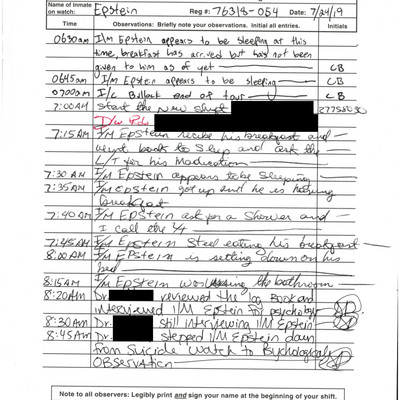 Name of Inmate
on watch: Epstein Reg #: 76318-054 Date: 7/24/19
Time Observations: Briefly note your observations. Initial all entries. Initials
0630am I/m Epstein appears to be sleeping at this
time, breakfast has arrived but has not been
given to him as of yet CB
0645am I/m Epstein appears to be sleeping CB
0700am I/c Bullock end of tour CB
7:00AM start the new shift
7:15AM I/M EPSTEIN recibe his breakfast and
went back to sleep and ask the
L/T for his Madication
7:30 AM I/M Epstein appears to be sleeping
7:35AM I/M Epstein got up and he is having
breakfast
7:40 AM I/M EPSTEIN ask for a shower and
I call the
7:45AM I/M EPSTEIN Steel eating his breakfast
8:00AM I/M EPSTEIN is setting down on his
bed
8:15AM I/M EPSTEIN was using the bathroom
8:20AM Dr. reviewed the log Book and
interviewed I/M EPSTEIN for psychology
8:30AM Dr. still interviewing I/M Epstein
8:45AM Dr. stepped I/M EPSTEIN down
from Suicide Watch to Psychological
OBSERVATION
Note to all observers: Legibly print and sign your name at the beginning of your shift.